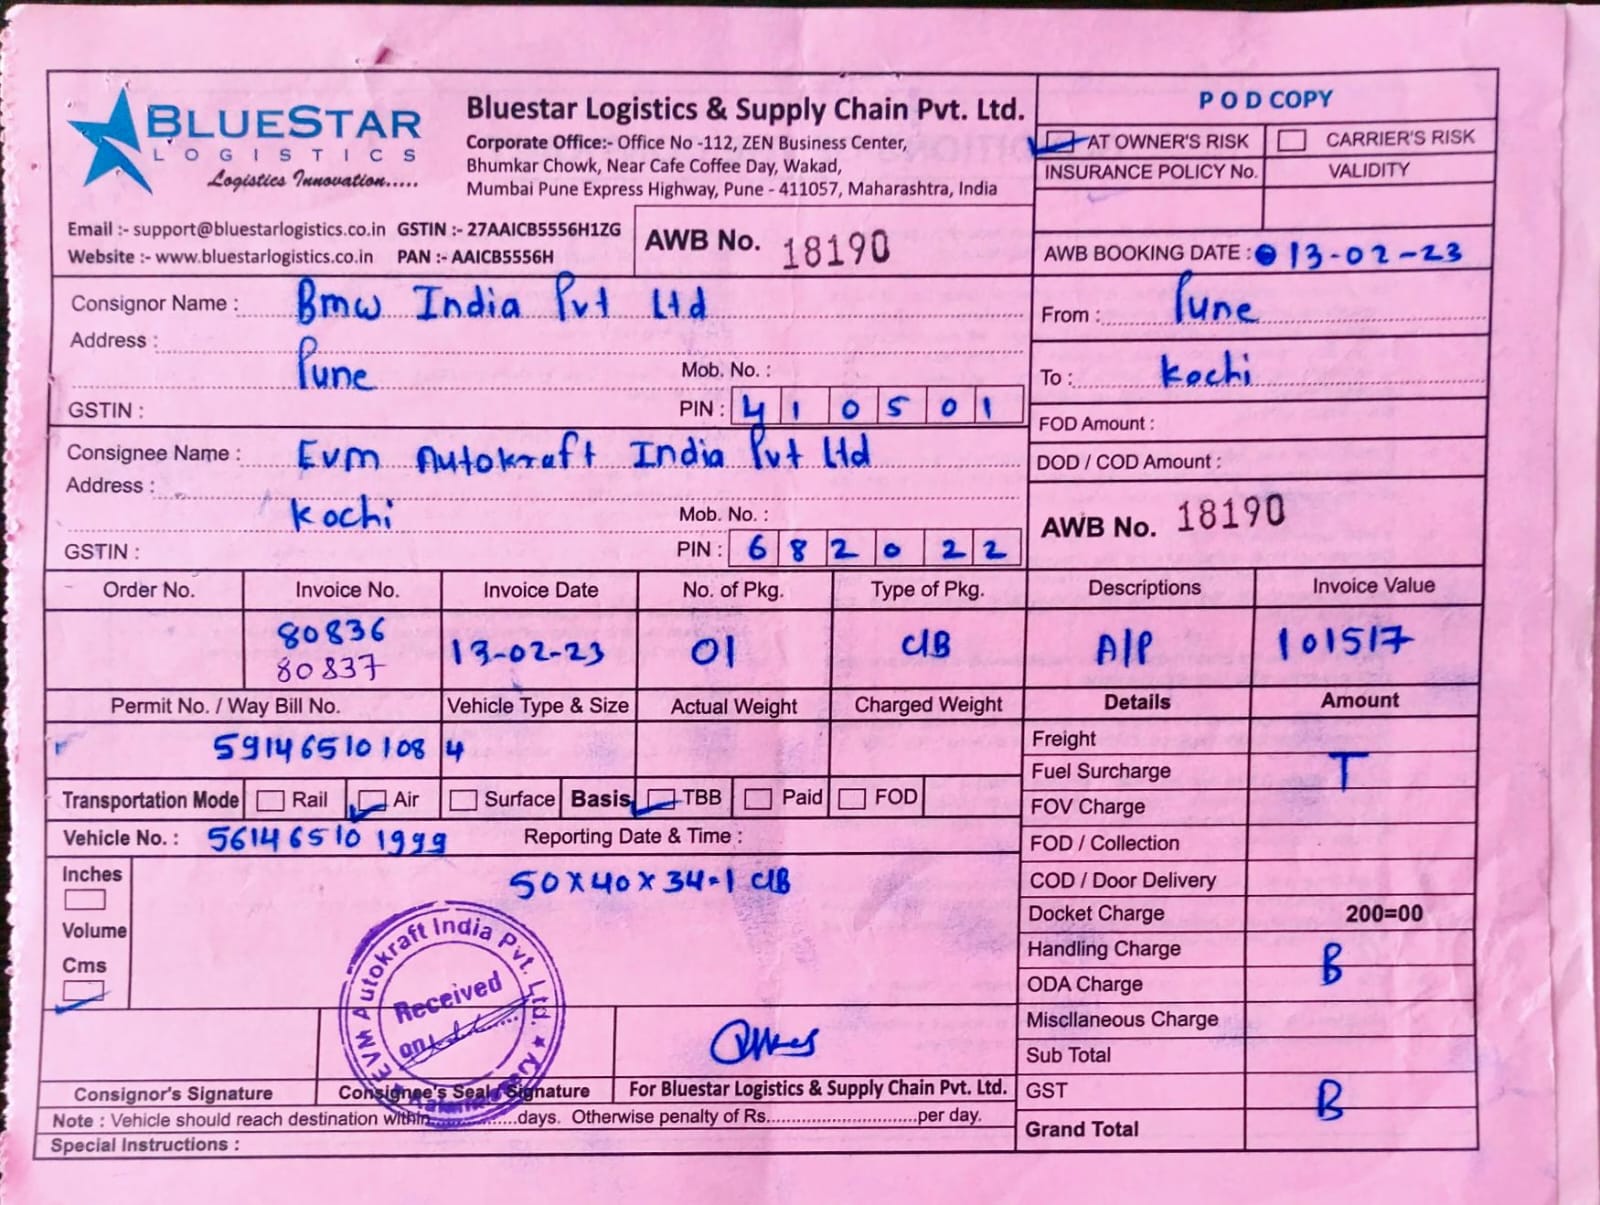 BLUESTAR
LOGISTICS
Logistics Innovation.....
Bluestar Logistics & Supply Chain Pvt. Ltd.
Corporate Office:- Office No -112, ZEN Business Center,
Bhumkar Chowk, Near Cafe Coffee Day, Wakad,
Mumbai Pune Express Highway, Pune - 411057, Maharashtra, India
P O D COPY
AT OWNER'S RISK CARRIER'S RISK
INSURANCE POLICY No. VALIDITY
Email :- support@bluestarlogistics.co.in GSTIN :- 27AAICB5556H1ZG
Website :- www.bluestarlogistics.co.in PAN :- AAICB5556H
AWB No. 18190
AWB BOOKING DATE : 13-02-23
Consignor Name : Bmw India Pvt Ltd
Address :
Pune
Mob. No. :
GSTIN :
PIN : 410501
From : Pune
To : Kochi
FOD Amount :
DOD / COD Amount :
Consignee Name : Evm Autokraft India Pvt Ltd
Address :
Kochi
Mob. No. :
GSTIN :
PIN : 682022
AWB No. 18190
Order No. Invoice No. Invoice Date No. of Pkg. Type of Pkg. Descriptions Invoice Value
80836
80837 13-02-23 01 C/B A/P 101517
Permit No. / Way Bill No. Vehicle Type & Size Actual Weight Charged Weight Details Amount
591465101084
Transportation Mode Rail Air Surface Basis TBB Paid FOD
Vehicle No. : 561465101999 Reporting Date & Time :
Inches
Volume
Cms
50 x 40 x 34-1 C/B
Freight
Fuel Surcharge T
FOV Charge
FOD / Collection
COD / Door Delivery
Docket Charge 200=00
Handling Charge B
ODA Charge
Miscllaneous Charge
Sub Total
GST B
Grand Total
EVM Autokraft India Pvt. Ltd.
Received
on
Consignor's Signature Consignee's Seal Signature For Bluestar Logistics & Supply Chain Pvt. Ltd.
Note : Vehicle should reach destination within..............days. Otherwise penalty of Rs..............................per day.
Special Instructions :